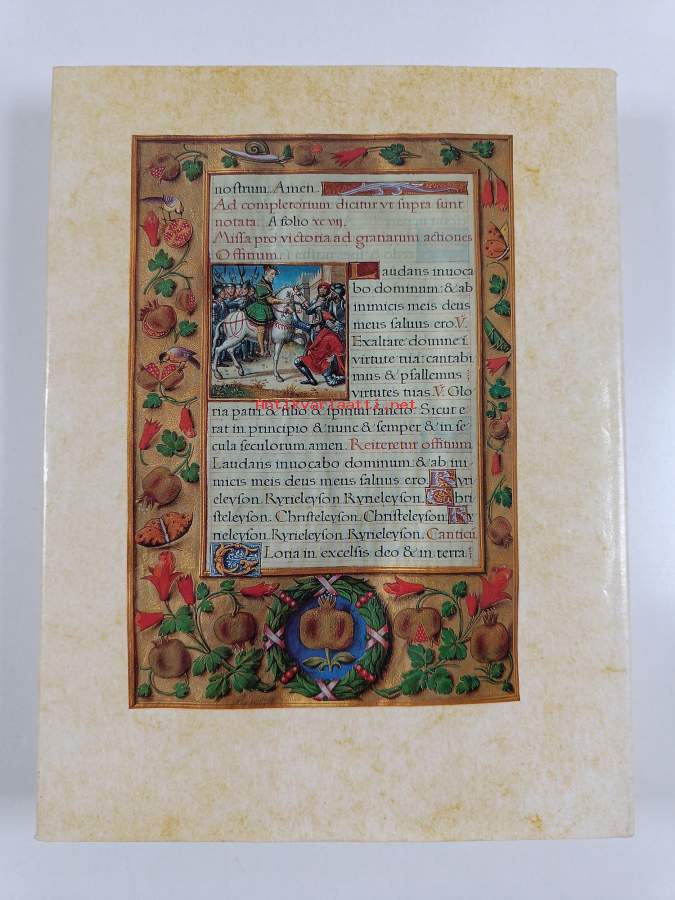 nostrum. Amen.
Ad completorium dicitur vt supra sunt
notata. A folio xc vij.
Missa pro victoria ad gratiarum actiones
Offitium.
Laudans inuoca
bo dominum: & ab
inimicis meis deus
meus saluus ero. V.
Exaltare domine i
virtute tua: cantabi
mus & psallemus
virtutes tuas. V. Glo
ria patri & filio & spiritui sancto. Sicut e
Antikvariaatti.net
rat in principio & nunc & semper & in se
cula seculorum amen. Reiteretur offitium
Laudans inuocabo dominum & ab ini
micis meis deus meus saluus ero. Kyri
eleyson. Kyrieleyson. Kyrieleyson. Chri
steleyson. Christeleyson. Christeleyson. Ky
rieleyson. Kyrieleyson. Kyrieleyson. Canticū
Gloria in excelsis deo & in terra